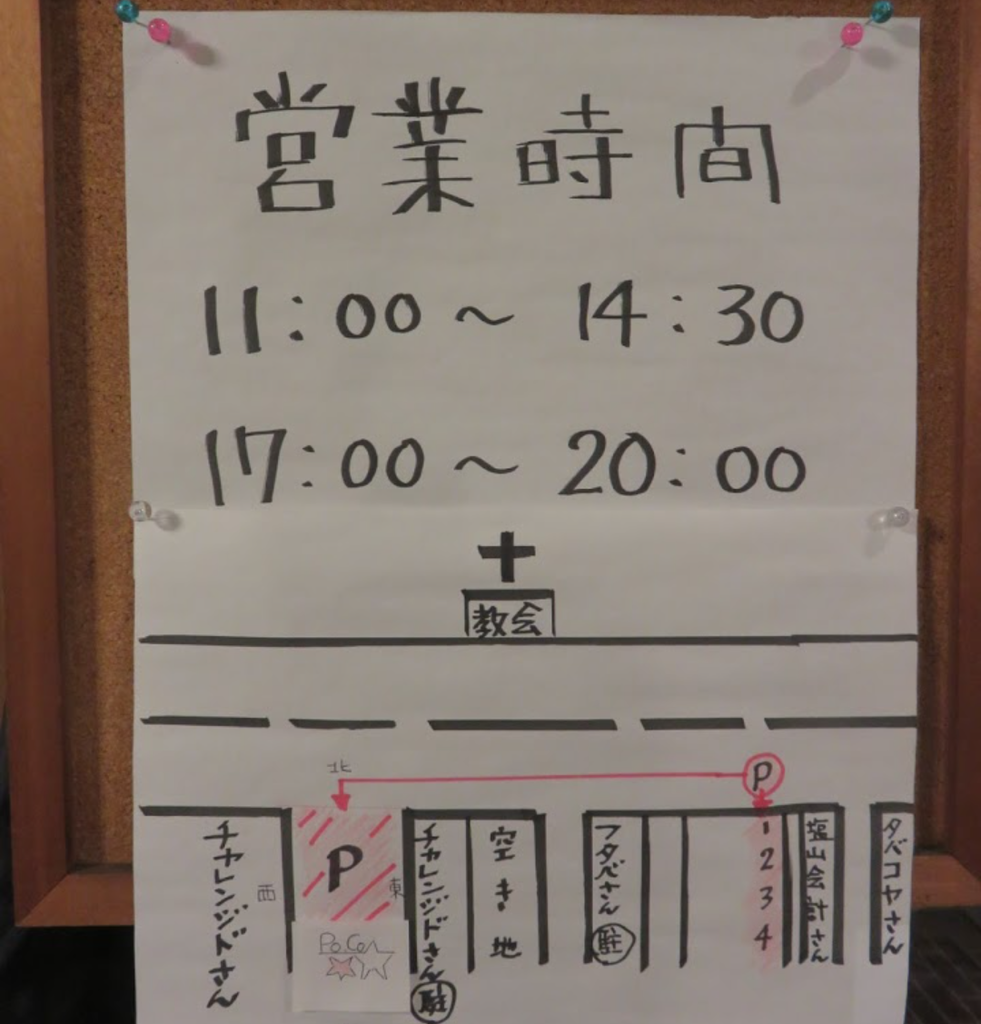 営業時間
11:00～14:30
17:00～20:00
教会
北
P
西
チャレンジドさん
P
東
チャレンジドさん
駐
空き地
フタバさん
駐
1
2
3
4
塩山会計さん
タバコヤさん